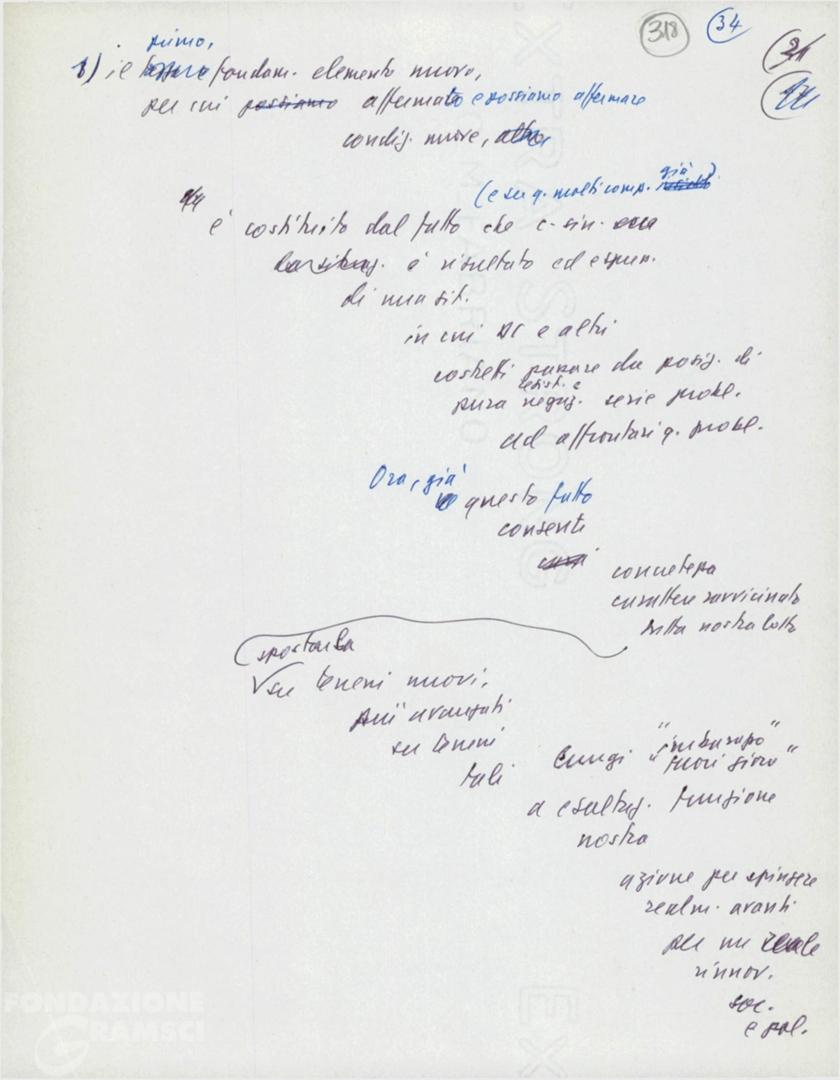 318 34
primo,
1) il fondam. elemento nuovo,
per cui possiamo affermato e possiamo affermare
condiz. nuove,
(e su q. molti comp. già)
è costituito dal fatto che c-sin.
è risultato ed espr.
di una sit.
in cui DC e altri
costretti passare da posiz. di
resist. e
pura negaz. serie probl.
ad affrontari q. probl.
Ora, già
questo fatto
consenti
concretezza
carattere ravvicinato
della nostra lotta
spostarla
su terreni nuovi,
più avanzati
su terreni
tali lungi "imbarazzo"
"fuori gioco"
a esaltaz. funzione
nostra
azione per spingere
realm. avanti
per un reale
rinnov.
soc.
e pol.
FONDAZIONE
GRAMSCI